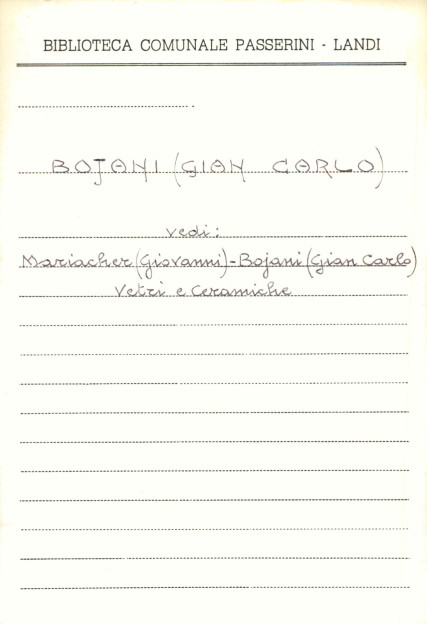 BIBLIOTECA COMUNALE PASSERINI - LANDI
BOJANI (GIAN CARLO)
vedi:
Mariacher (Giovanni) - Bojani (Gian Carlo)
Vetri e Ceramiche